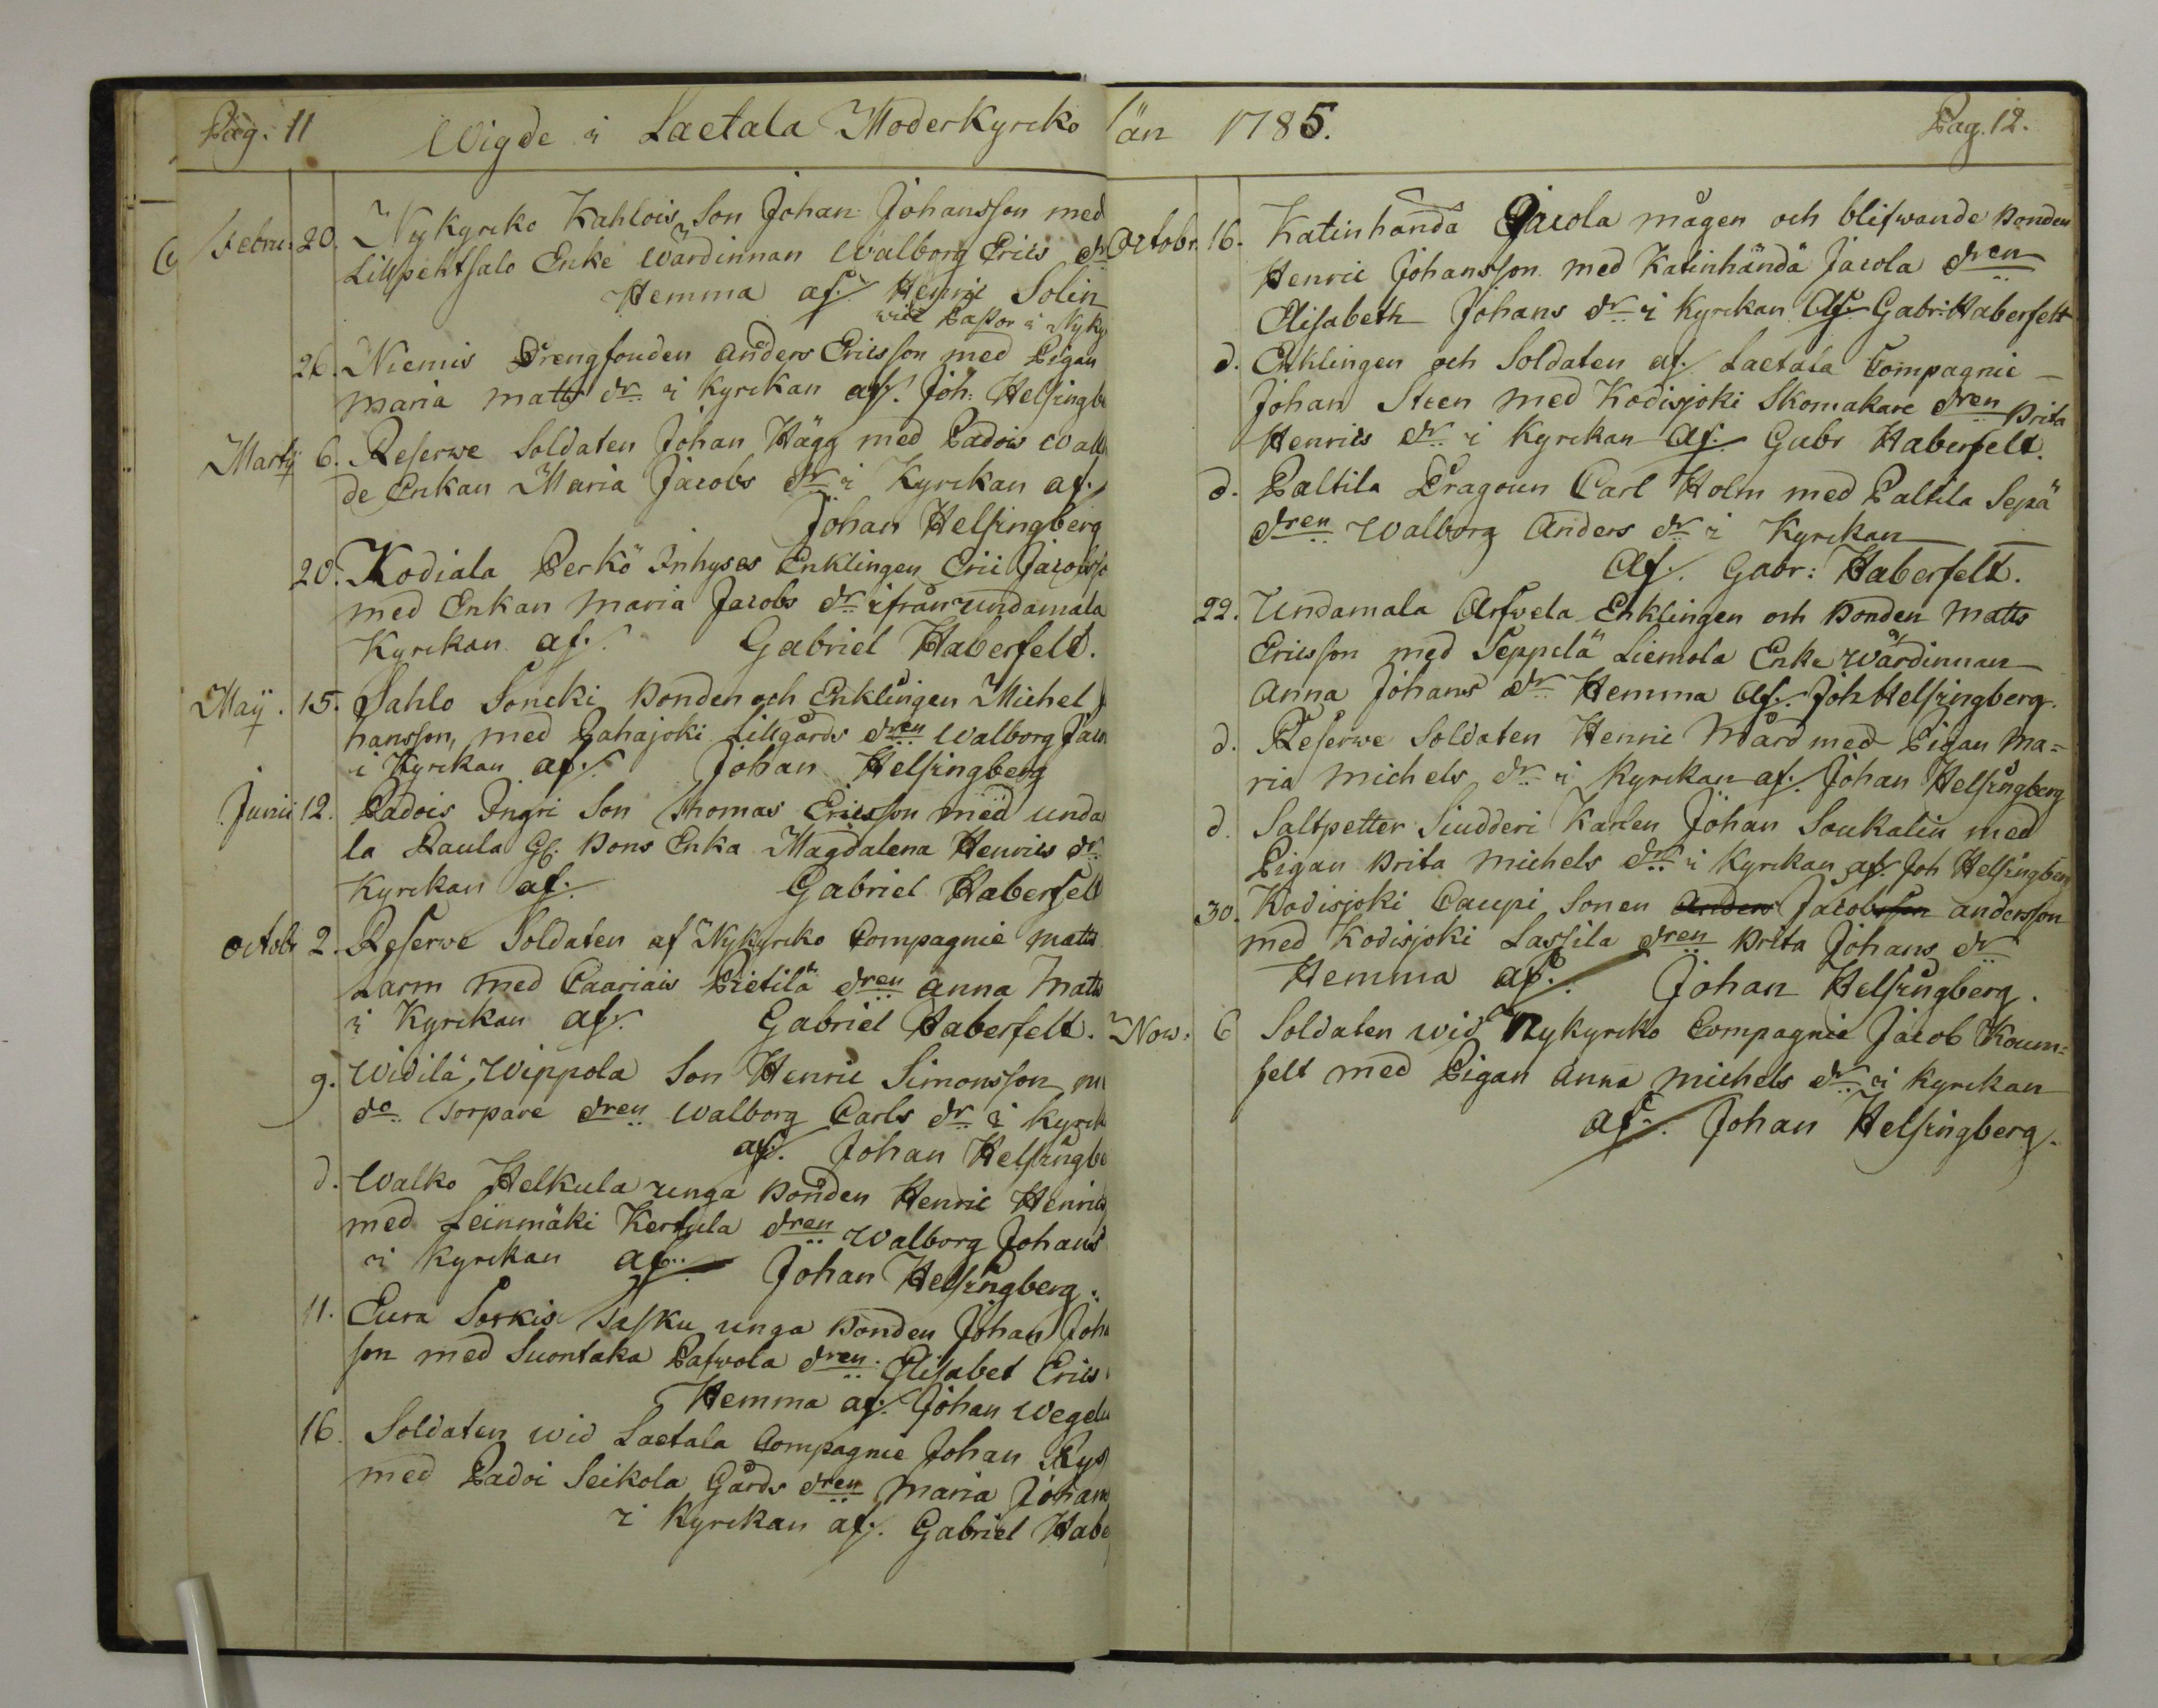 Pag. 11
Wigde i Laetala Moderkyrcko
Febru: 20. Nykyrcko Kahlois Son Johan Johansson med
Lillpehtsalo Enke Wärdinnan Walborg Erics dr
Hemma af. Henric Solin
vice Pastor i Nyky
26. Niemis Drengfouden Anders Ericsson med Pigan
Maria Matts dr i Kyrckan af. Joh: Helsingbe
Martÿ 6. Reserwe Soldaten Johan Hägg med Padois Wall
de Enkan Maria Jacobs dr i Kyrckan af.
Johan Helsingberg
20. Kodiala Perkö Inhyses Enklingen Eric Jacobsso
med Enkan Maria Jacobs dr ifrån Undamala
Kyrckan af. Gabriel Haberfelt.
Maÿ. 15. Sahlo Soncki Bonden och Enklingen Michel J
hansson, med Pahajoki Lillgårds dren Walborg Jaco
i Kyrckan af. Johan Helsingberg
Junii 12. Padois Ingri Son Thomas Ericsson med Unda
la Paula Gl. Bons Enka Magdalena Henrics dr
Kyrckan af. Gabriel Haberfelt
Octobr 2. Reserwe Soldaten af Nykyrcko Compagnie Matts
Larm med Caariais Pietilä dren Anna Matts
i Kyrckan af. Gabriel Haberfelt.
9. Widilä, Wippola Son Henric Simonsson m
do Torpare dren Walborg Carls dr i Kyrck
af. Johan Helsingbe
d. Walko Helkula unga Bonden Henric Henrics
med Leinmäki Kertula dren Walborg Johans
i Kyrckan af. Johan Helsingberg.
11. Eura Sorkis Tasku unga Bonden Johan Joha
son med Suontaka Pafwola dren Elisabet Erics
Hemma af. Johan Wegeli
16. Soldaten wid Laetala Compagnie Johan Rys
med Padoi Seikola Gårds dren Maria Johans
i Kyrckan af. Gabriel Habe
än 1785.
Pag. 12.
Octobr. 16. Katinhändä Jacola mågen och blifwande Bonden
Henric Johansson med Katinhändä Jacola dren
Elisabeth Johans dr i Kyrckan Af. Gabr: Haberfelt
d. Enklingen och Soldaten af Laetala Compagnie
Johan Steen med Kodisjoki Skomakare dren Brita
Henrics dr i Kyrckan Af. Gabr Haberfelt.
d. Paltila Dragoun Carl Holm med Paltila Sepä
dren Walborg Anders dr i Kyrckan
Af. Gabr: Haberfelt.
22. Undamala Arfwela Enklingen och Bonden Matts
Ericsson med Seppelä Liemola Enke Wärdinnan
Anna Johans dr Hemma Af. Joh Helsingberg.
d. Reserwe Soldaten Henric Mård med Pigan Ma=
ria Michels dr i Kyrckan af. Johan Helsingberg
d. Saltpetter Siudderi Karlen Johan Soukalin med
Pigan Brita Michels dr i Kyrckan af. Joh Helsingberg
30. Kodisjoki Caupi Sonen Anders Jacobsson andersson
med Kodisjoki Lassila dren Brita Johans dr
Hemma af. Johan Helsingberg.
Now: 6 Soldaten wid Nykyrcko Compagnie Jacob Koum=
felt med Pigan Anna Michels dr i Kyrckan
af. Johan Helsingberg.